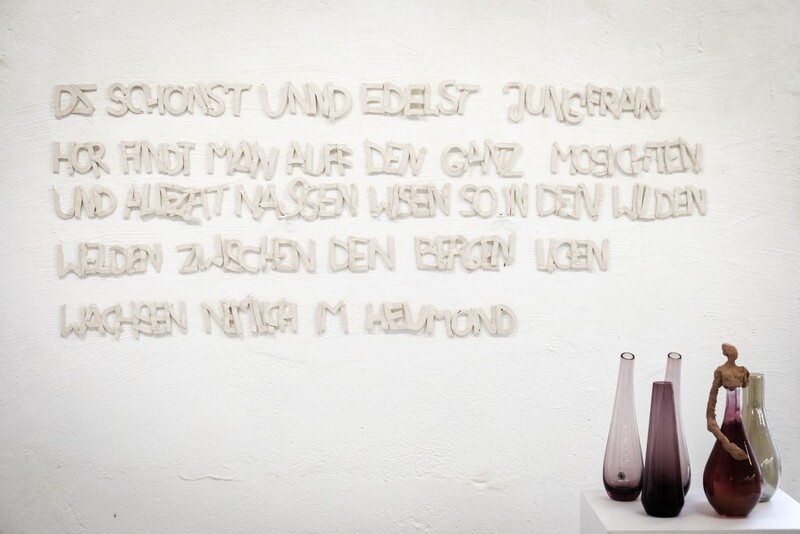 DZ SCHONST UNND EDELST JUNGFRAW
HOR FINDT MAN AUFF DEN GANZ MOSICHTEN
UND ALLZEIT NASSEN WISEN SO IN DEN WILDEN
WELDEN ZWISCHEN DEN BERGEN LIGEN
WACHSEN NEMLICH IM HEUMOND